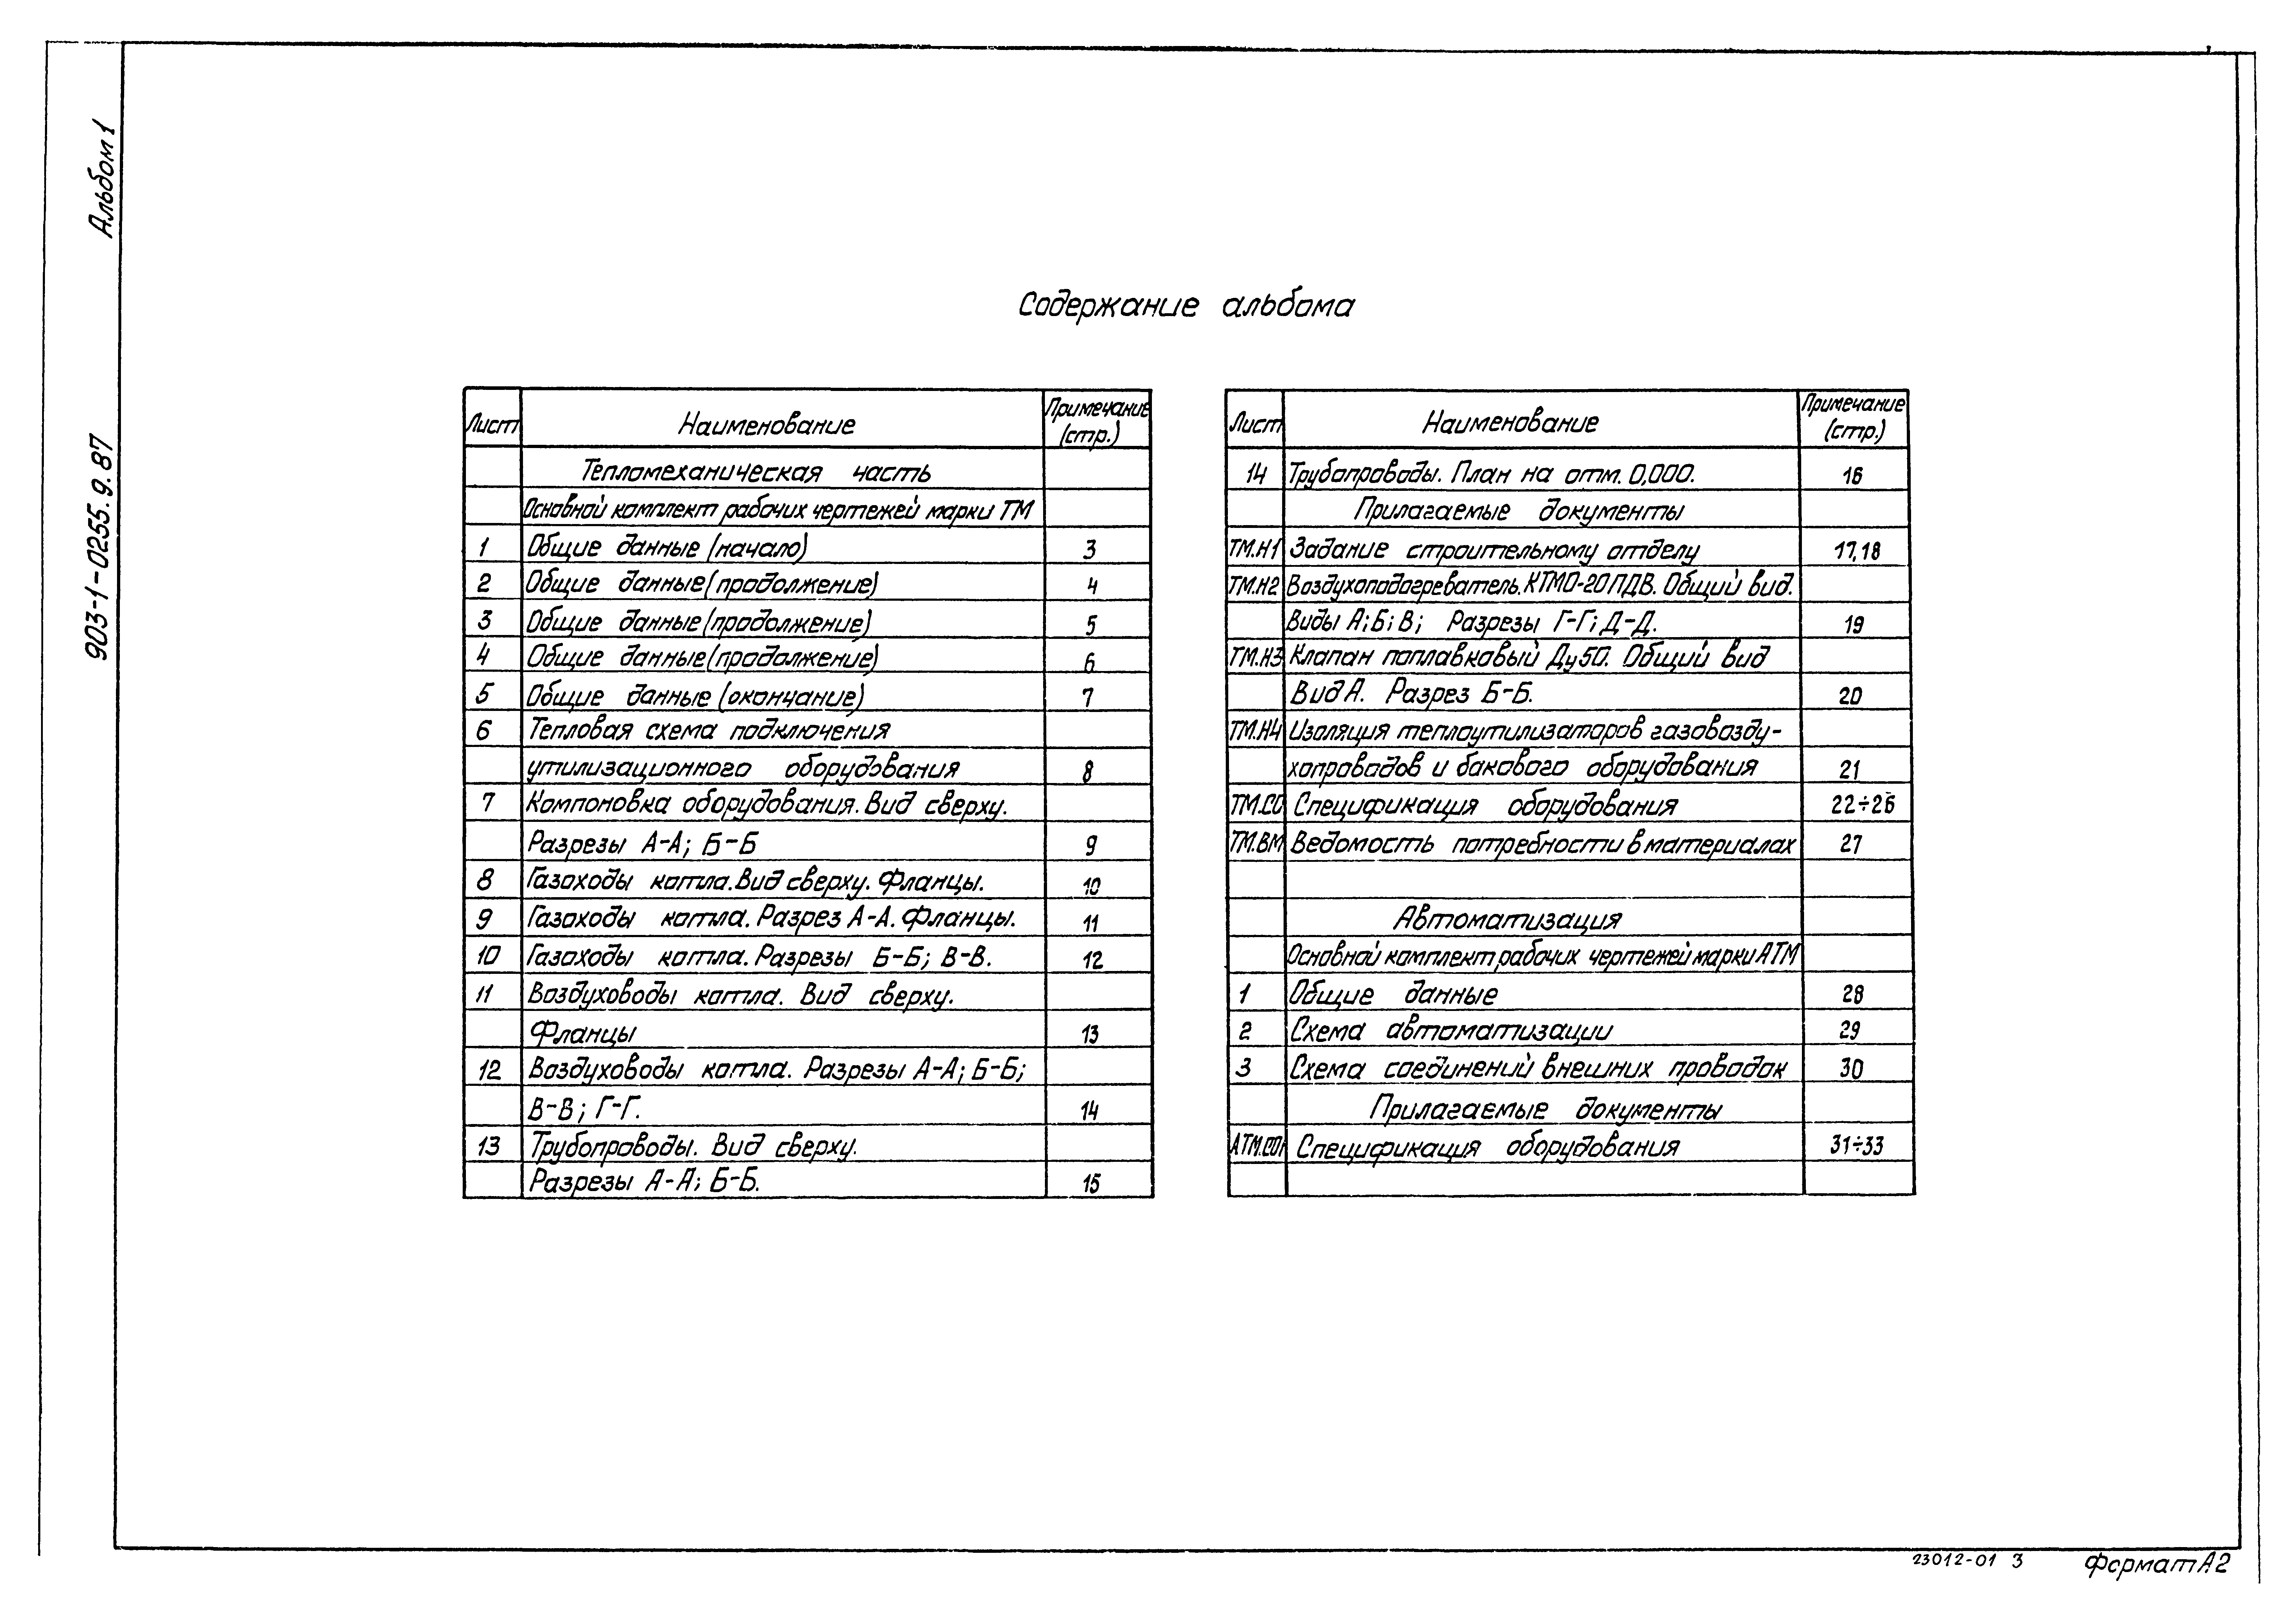 Альбом 1
903-1-0255.9.87
Содержание альбома
Лист Наименование Примечание (стр.)
Тепломеханическая часть
Основной комплект рабочих чертежей марки ТМ
1 Общие данные (начало) 3
2 Общие данные (продолжение) 4
3 Общие данные (продолжение) 5
4 Общие данные (продолжение) 6
5 Общие данные (окончание) 7
6 Тепловая схема подключения
утилизационного оборудования 8
7 Компоновка оборудования. Вид сверху.
Разрезы А-А; Б-Б 9
8 Газоходы котла. Вид сверху. Фланцы. 10
9 Газоходы котла. Разрез А-А. Фланцы. 11
10 Газоходы котла. Разрезы Б-Б; В-В. 12
11 Воздуховоды котла. Вид сверху.
Фланцы 13
12 Воздуховоды котла. Разрезы А-А; Б-Б;
В-В; Г-Г. 14
13 Трубопроводы. Вид сверху.
Разрезы А-А; Б-Б. 15
Лист Наименование Примечание (стр.)
14 Трубопроводы. План на отм. 0,000. 16
Прилагаемые документы
ТМ.Н1 Задание строительному отделу 17,18
ТМ.Н2 Воздухоподогреватель. КТМО-20ПДВ. Общий вид.
Виды А; Б; В; Разрезы Г-Г; Д-Д. 19
ТМ.Н3 Клапан поплавковый Ду50. Общий вид
Вид А. Разрез Б-Б. 20
ТМ.Н4 Изоляция теплоутилизаторов газовозду-
хопроводов и бакового оборудования 21
ТМ.СО Спецификация оборудования 22÷26
ТМ.ВМ Ведомость потребности в материалах 27
Автоматизация
Основной комплект рабочих чертежей марки АТМ
1 Общие данные 28
2 Схема автоматизации 29
3 Схема соединений внешних проводок 30
Прилагаемые документы
АТМ.СО1 Спецификация оборудования 31÷33
23012-01 3
Формат А2